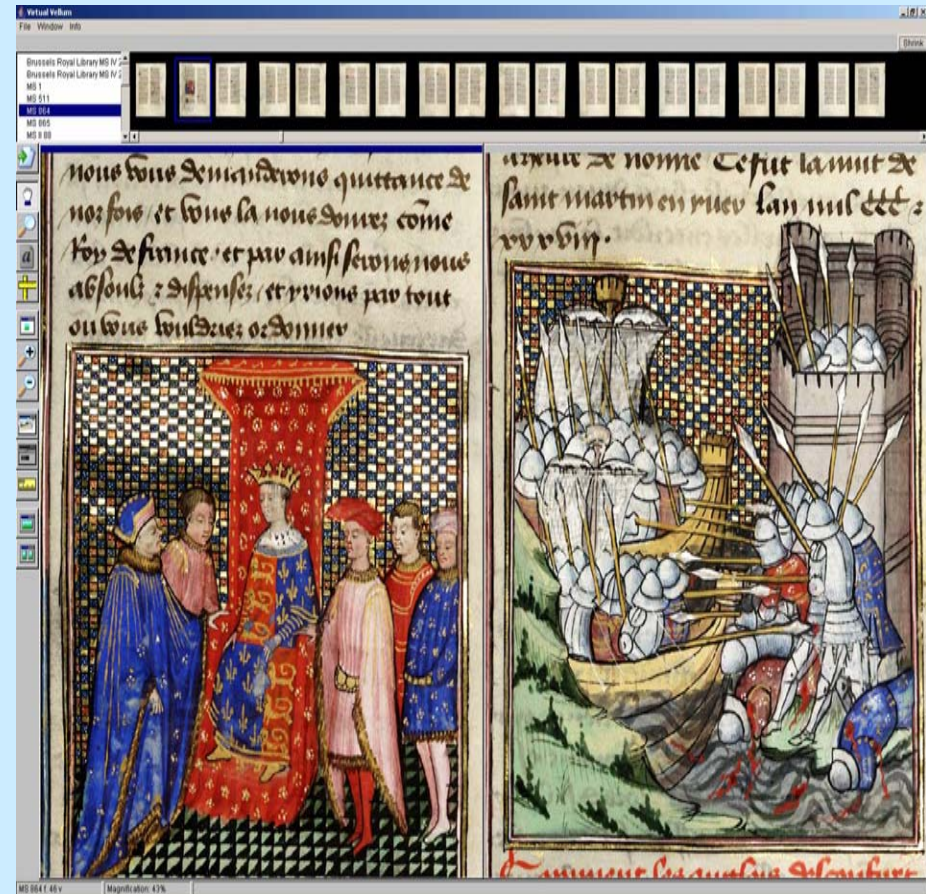 Virtual Vellum
File Window Info
Shrink
Brussels Royal Library MS IV 2
Brussels Royal Library MS IV 2
MS 1
MS 511
MS 864
MS 865
MS II 88
nous vous demanderons quittance de
noz fois / et vous la nous donrez cõme
Roy de france · et par ainsi serons nous
absoulz z dispensez / et yrions par tout
ou vous vouldriez ordonner
de nonne Ce fut la nuit de
saint martin en yver Lan mil ccc z
xxxviij ·
Comment les anglois desconfirent
MS 864 f. 46 v
Magnification: 43%